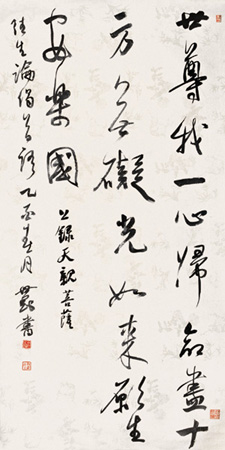 世尊我一心歸命盡十
方無礙光如來願生
安樂國
上錄天親菩薩
往生論偈首語乙酉春月書